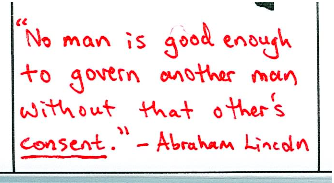 "No man is good enough
to govern another man
without that other's
consent." - Abraham Lincoln